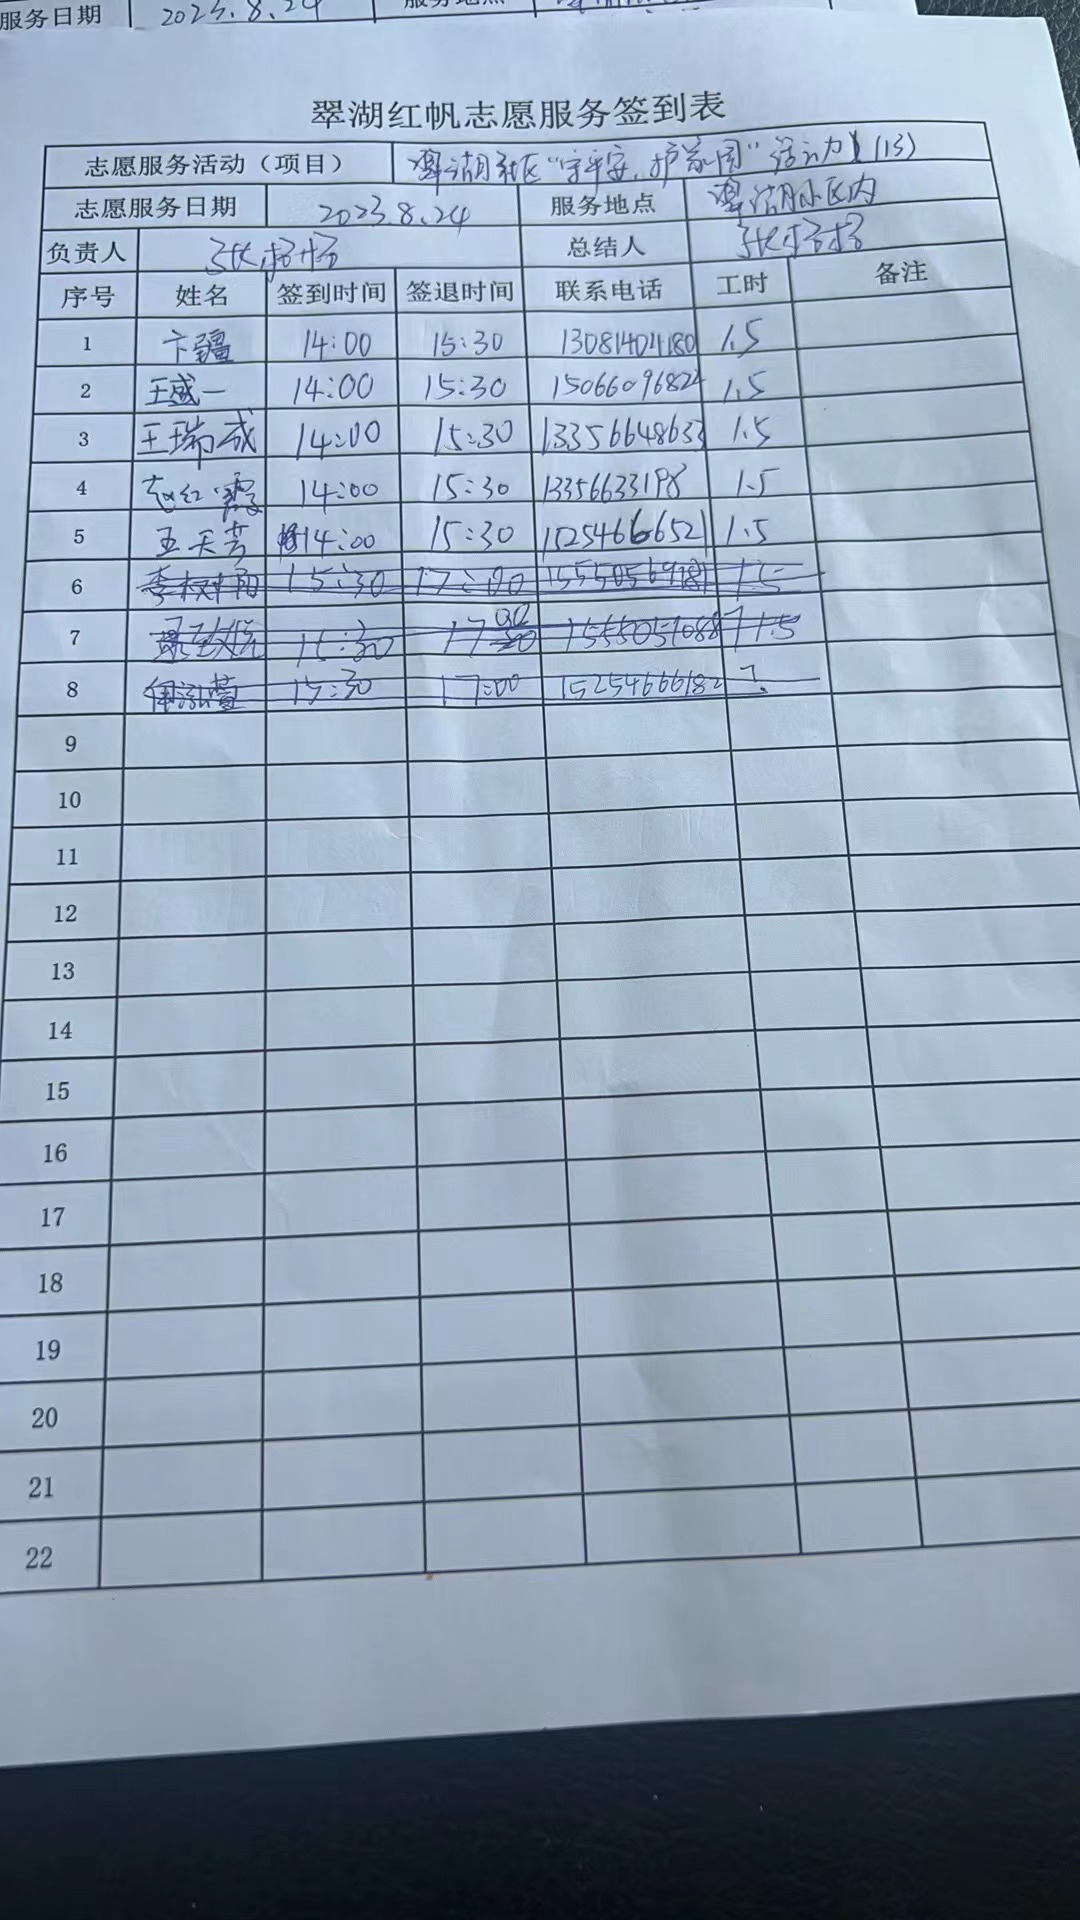 服务日期 2023.8.24 服务地点
翠湖红帆志愿服务签到表
志愿服务活动（项目） 翠湖社区"守平安、护家园"活动（13）
志愿服务日期 2023.8.24 服务地点 翠湖小区内
负责人 张杨杨 总结人 张杨杨
序号 姓名 签到时间 签退时间 联系电话 工时 备注
1 卞疆 14:00 15:30 13081401180 1.5
2 王威一 14:00 15:30 1.5
3 王瑞成 14:00 15:30 13356648633 1.5
4 赵红霞 14:00 15:30 13356633198 1.5
5 王天芳 14:00 15:30 15254666521 1.5
6 15:30 17:00 1.5
7 15:30 17:00 1.5
8 15:30 17:00 15254666182
9
10
11
12
13
14
15
16
17
18
19
20
21
22